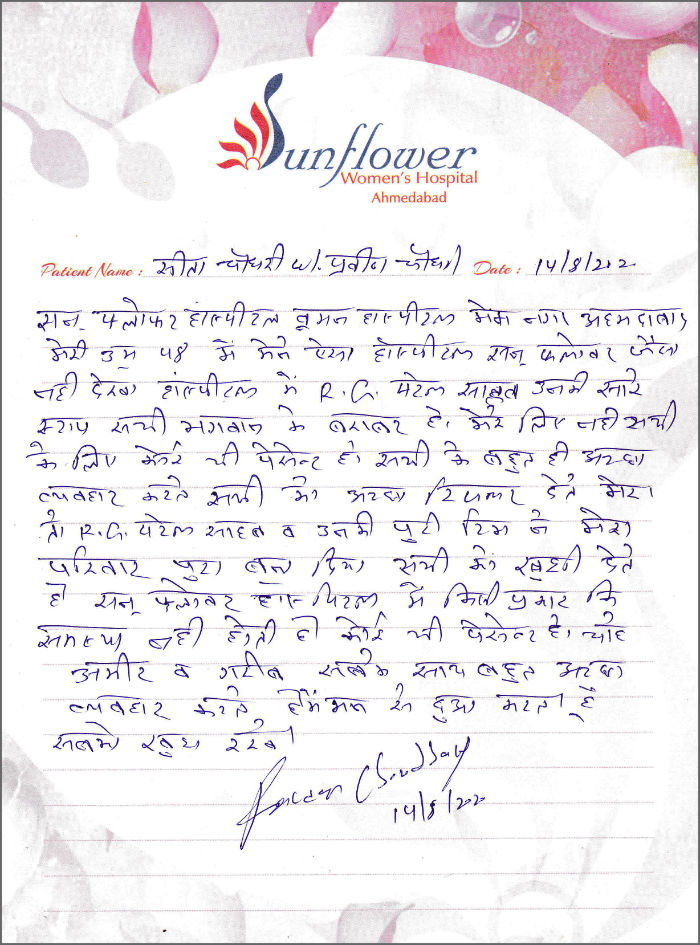 Sunflower
Women's Hospital
Ahmedabad
Patient Name : सीता चौधरी w/. प्रवीन चौधरी Date : 14/8/202
सन् फ्लोवर हॉस्पीटल वूमन हॉस्पीटल मेम नगर अहमदाबाद
मेरी उम्र 48 में मेने ऐसा हॉस्पीटल सन् फ्लोवर जैसा
नही देखा हॉस्पीटल में R.G. पटेल साहब उनकी सारे
स्टाप सभी भगवान के बराबर है। मेरे लिए नही सभी
के लिए कोई भी पेसेन्ट हो सभी के बहुत ही अच्छा
व्यवहार करते सभी को अच्छा रिजल्ट देते मेरा
तो R.G. पटेल साहब व उनकी पुरी टिम ने मेरा
परिवार पुरा बना दिया सभी को खुशी देते
है सन् फ्लोवर हॉस्पिटल में किसी प्रकार कि
समस्या नही होती हो कोई भी पेसेन्ट हो चाहे
अमीर व गरीब सबके साथ बहुत अच्छा
व्यवहार करते है मन से दुआ करता हूँ
सबको खुश रखे।
Praveen Choudhary
14/8/202